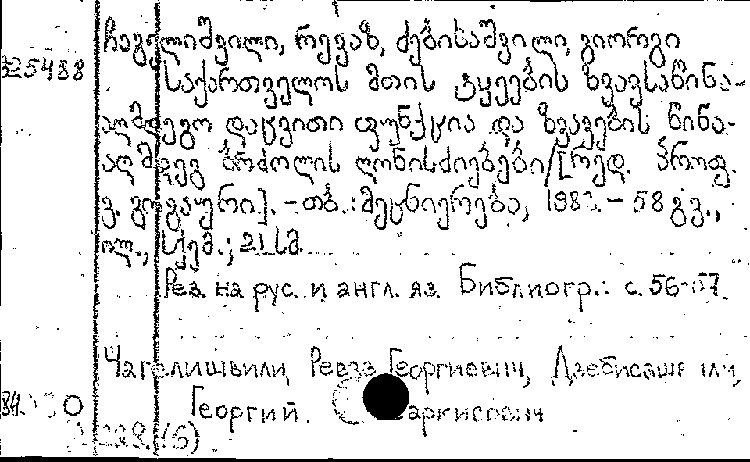 ჩაგელიშვილი, რევაზ, ძებისაშვილი, გიორგი
325488 საქართველოს მთის ტყეების ზვავსაწინა-
აღმდეგო დაცვითი ფუნქცია და ზვავების წინა-
აღმდეგ ბრძოლის ღონისძიებები/[რედ. პროფ.
ვ. გოგაური]. - თბ.: მეცნიერება, - 58 გვ.,
ილ., სქემ.; 21 სმ.
Рез. на рус. и англ. яз. Библиогр.: с. 56-57.
Чагелишвили, Реваз Георгиевич,
Георгий